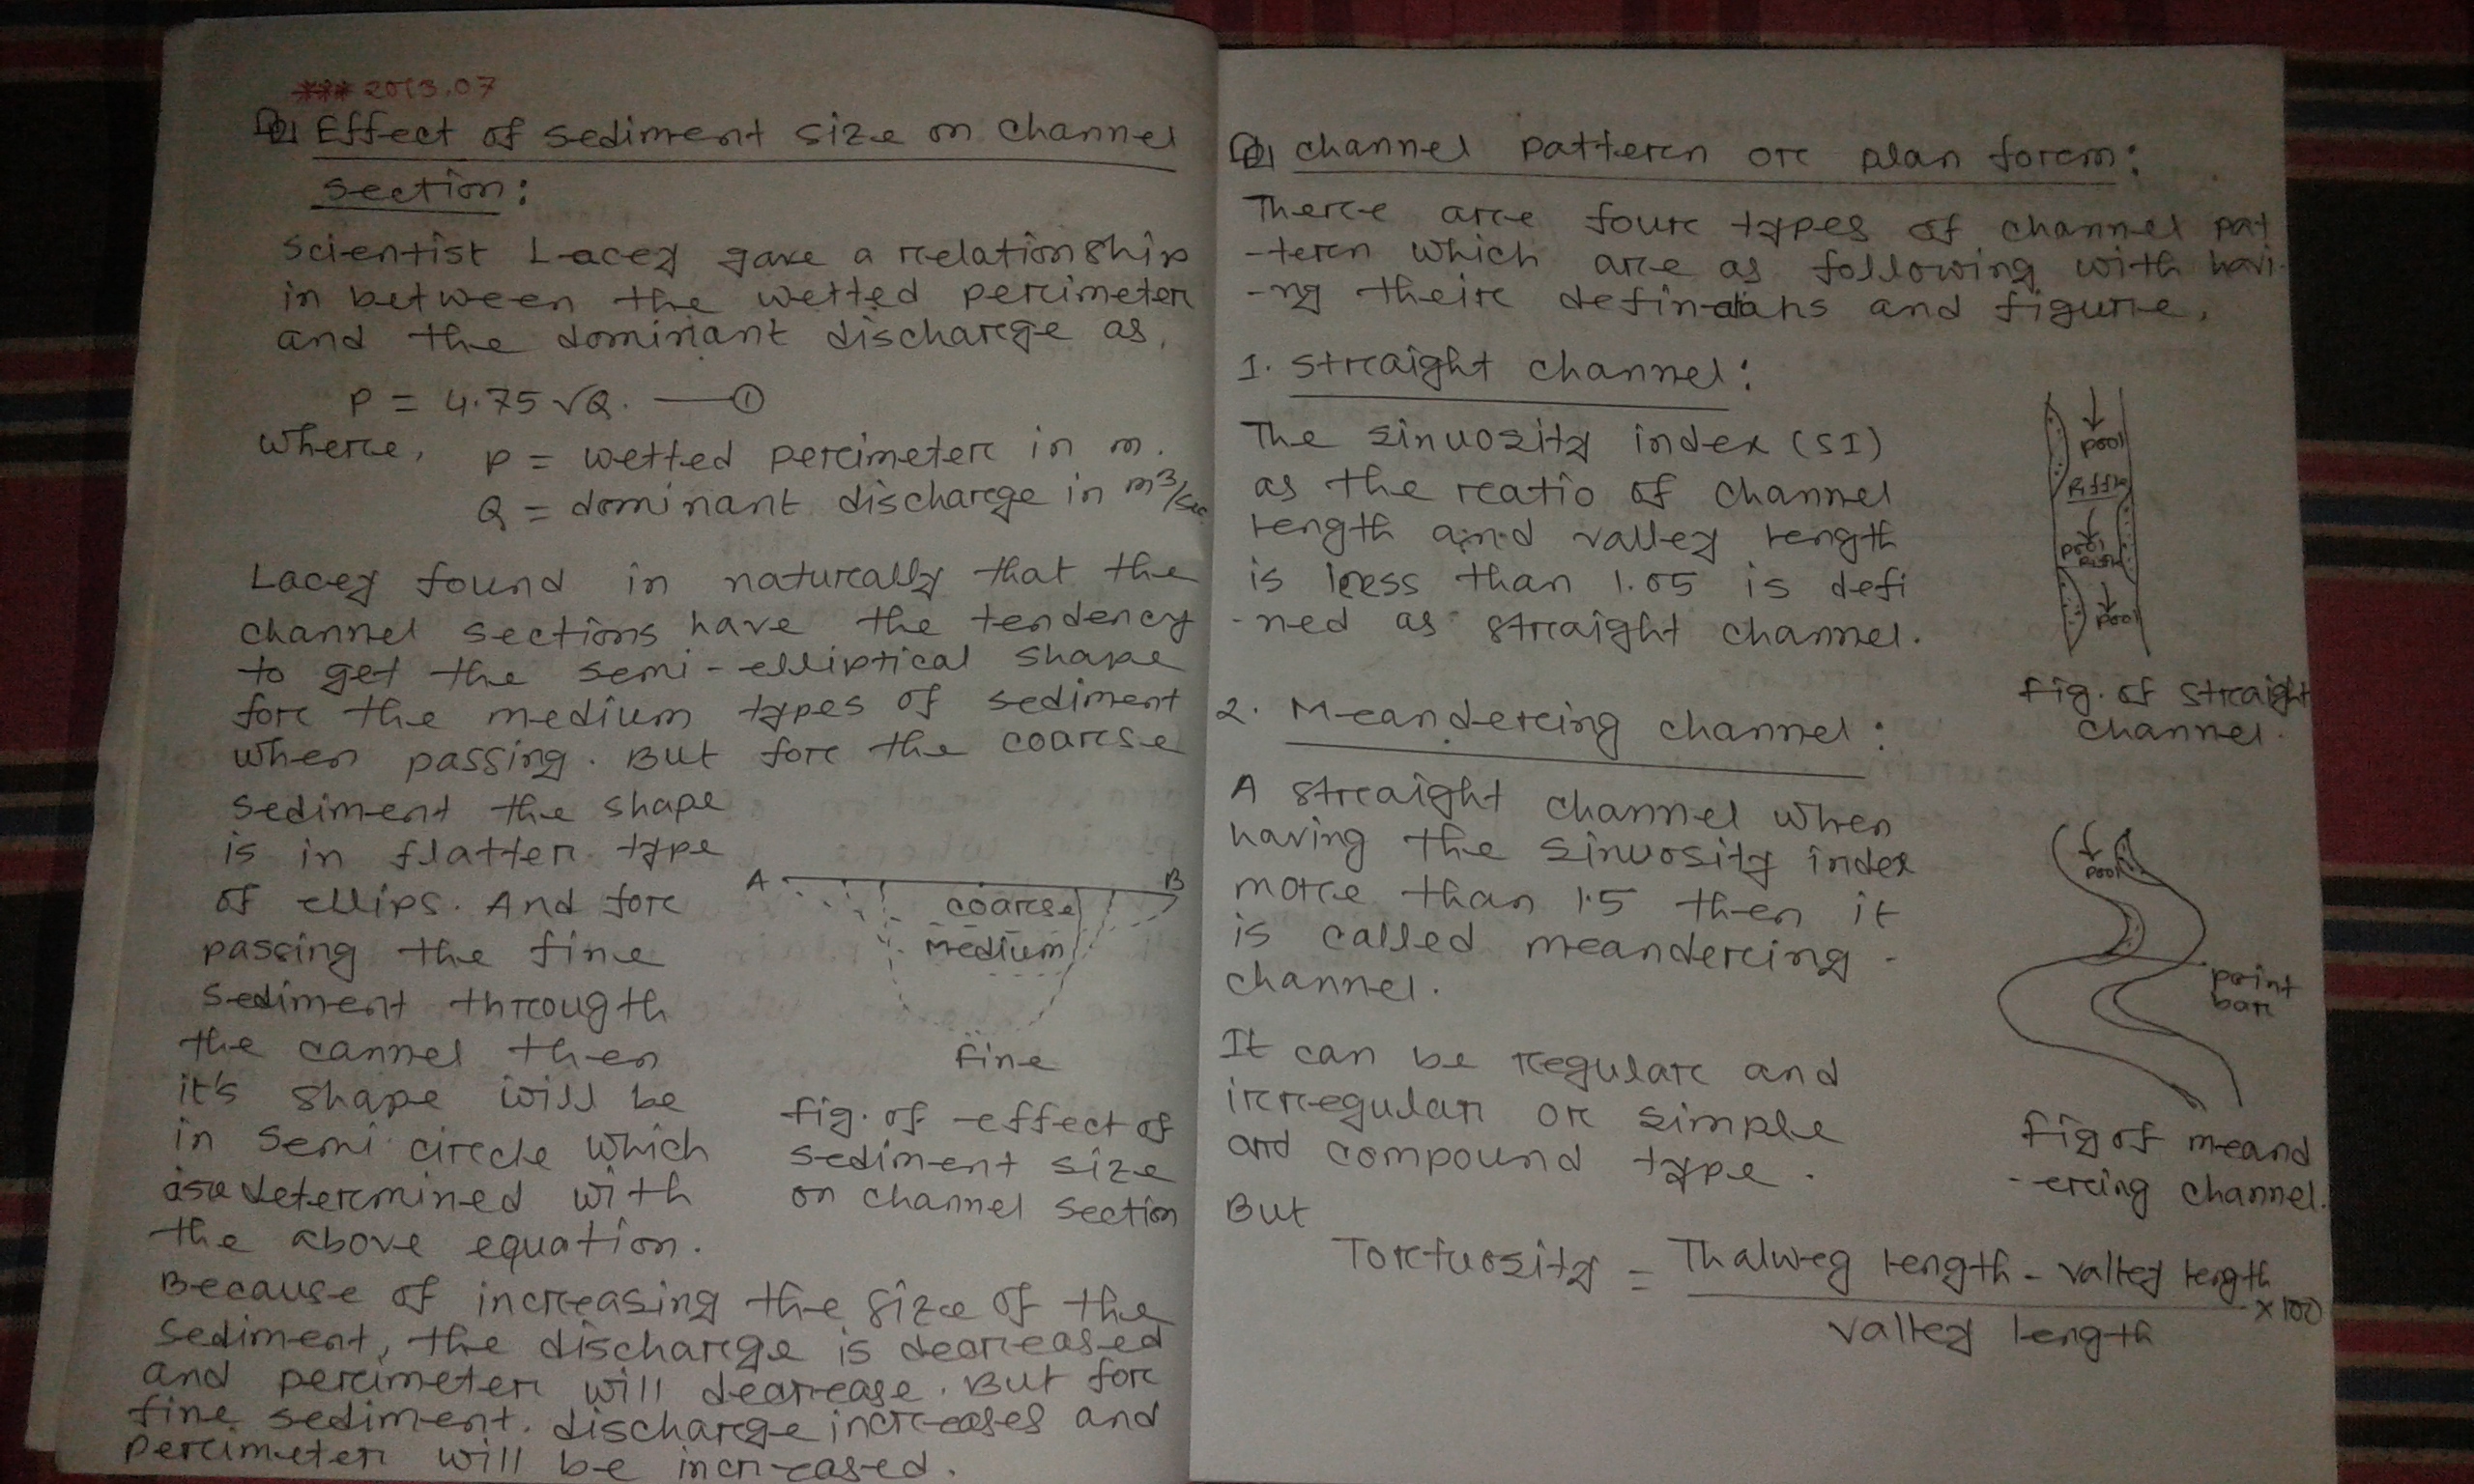 *** 2013.07
Effect of sediment size on channel
section:
Scientist Lacey gave a relationship
in between the wetted perimeter
and the dominant discharge as,
P = 4.75 √Q. —①
where, P = wetted perimeter in m.
Q = dominant discharge in m³/sec
Lacey found in naturally that the
channel sections have the tendency
to get the semi-elliptical shape
for the medium types of sediment
when passing. But for the coarse
sediment the shape
is in flatter type
of ellips. And for
passing the fine
sediment througth
the cannel then
it's shape will be
in semi circle which
determined with
the above equation.
A B
coarse
medium
fine
fig. of effect of
sediment size
on channel section
Because of increasing the size of the
sediment, the discharge is decreased
and perimeter will decrease. But for
fine sediment. discharge increases and
perimeter will be increased.
channel pattern or plan form:
There are four types of channel pat
-tern which are as following with havi-
-ng their and figure.
1. straight channel:
The sinuosity index (SI)
as the ratio of channel
length and valley length
is less than 1.05 is defi
-ned as straight channel.
pool
Riffle
pool
pool
fig. of straight
channel.
2. Meandering channel:
A straight channel when
having the sinuosity index
more than 1.5 then it
is called meandering -
channel.
It can be regular and
irregular or simple
and compound type.
pool
point
bar
fig of meand
-ering channel.
But
Tortuosity = Thalweg length - valley length
x100
valley length